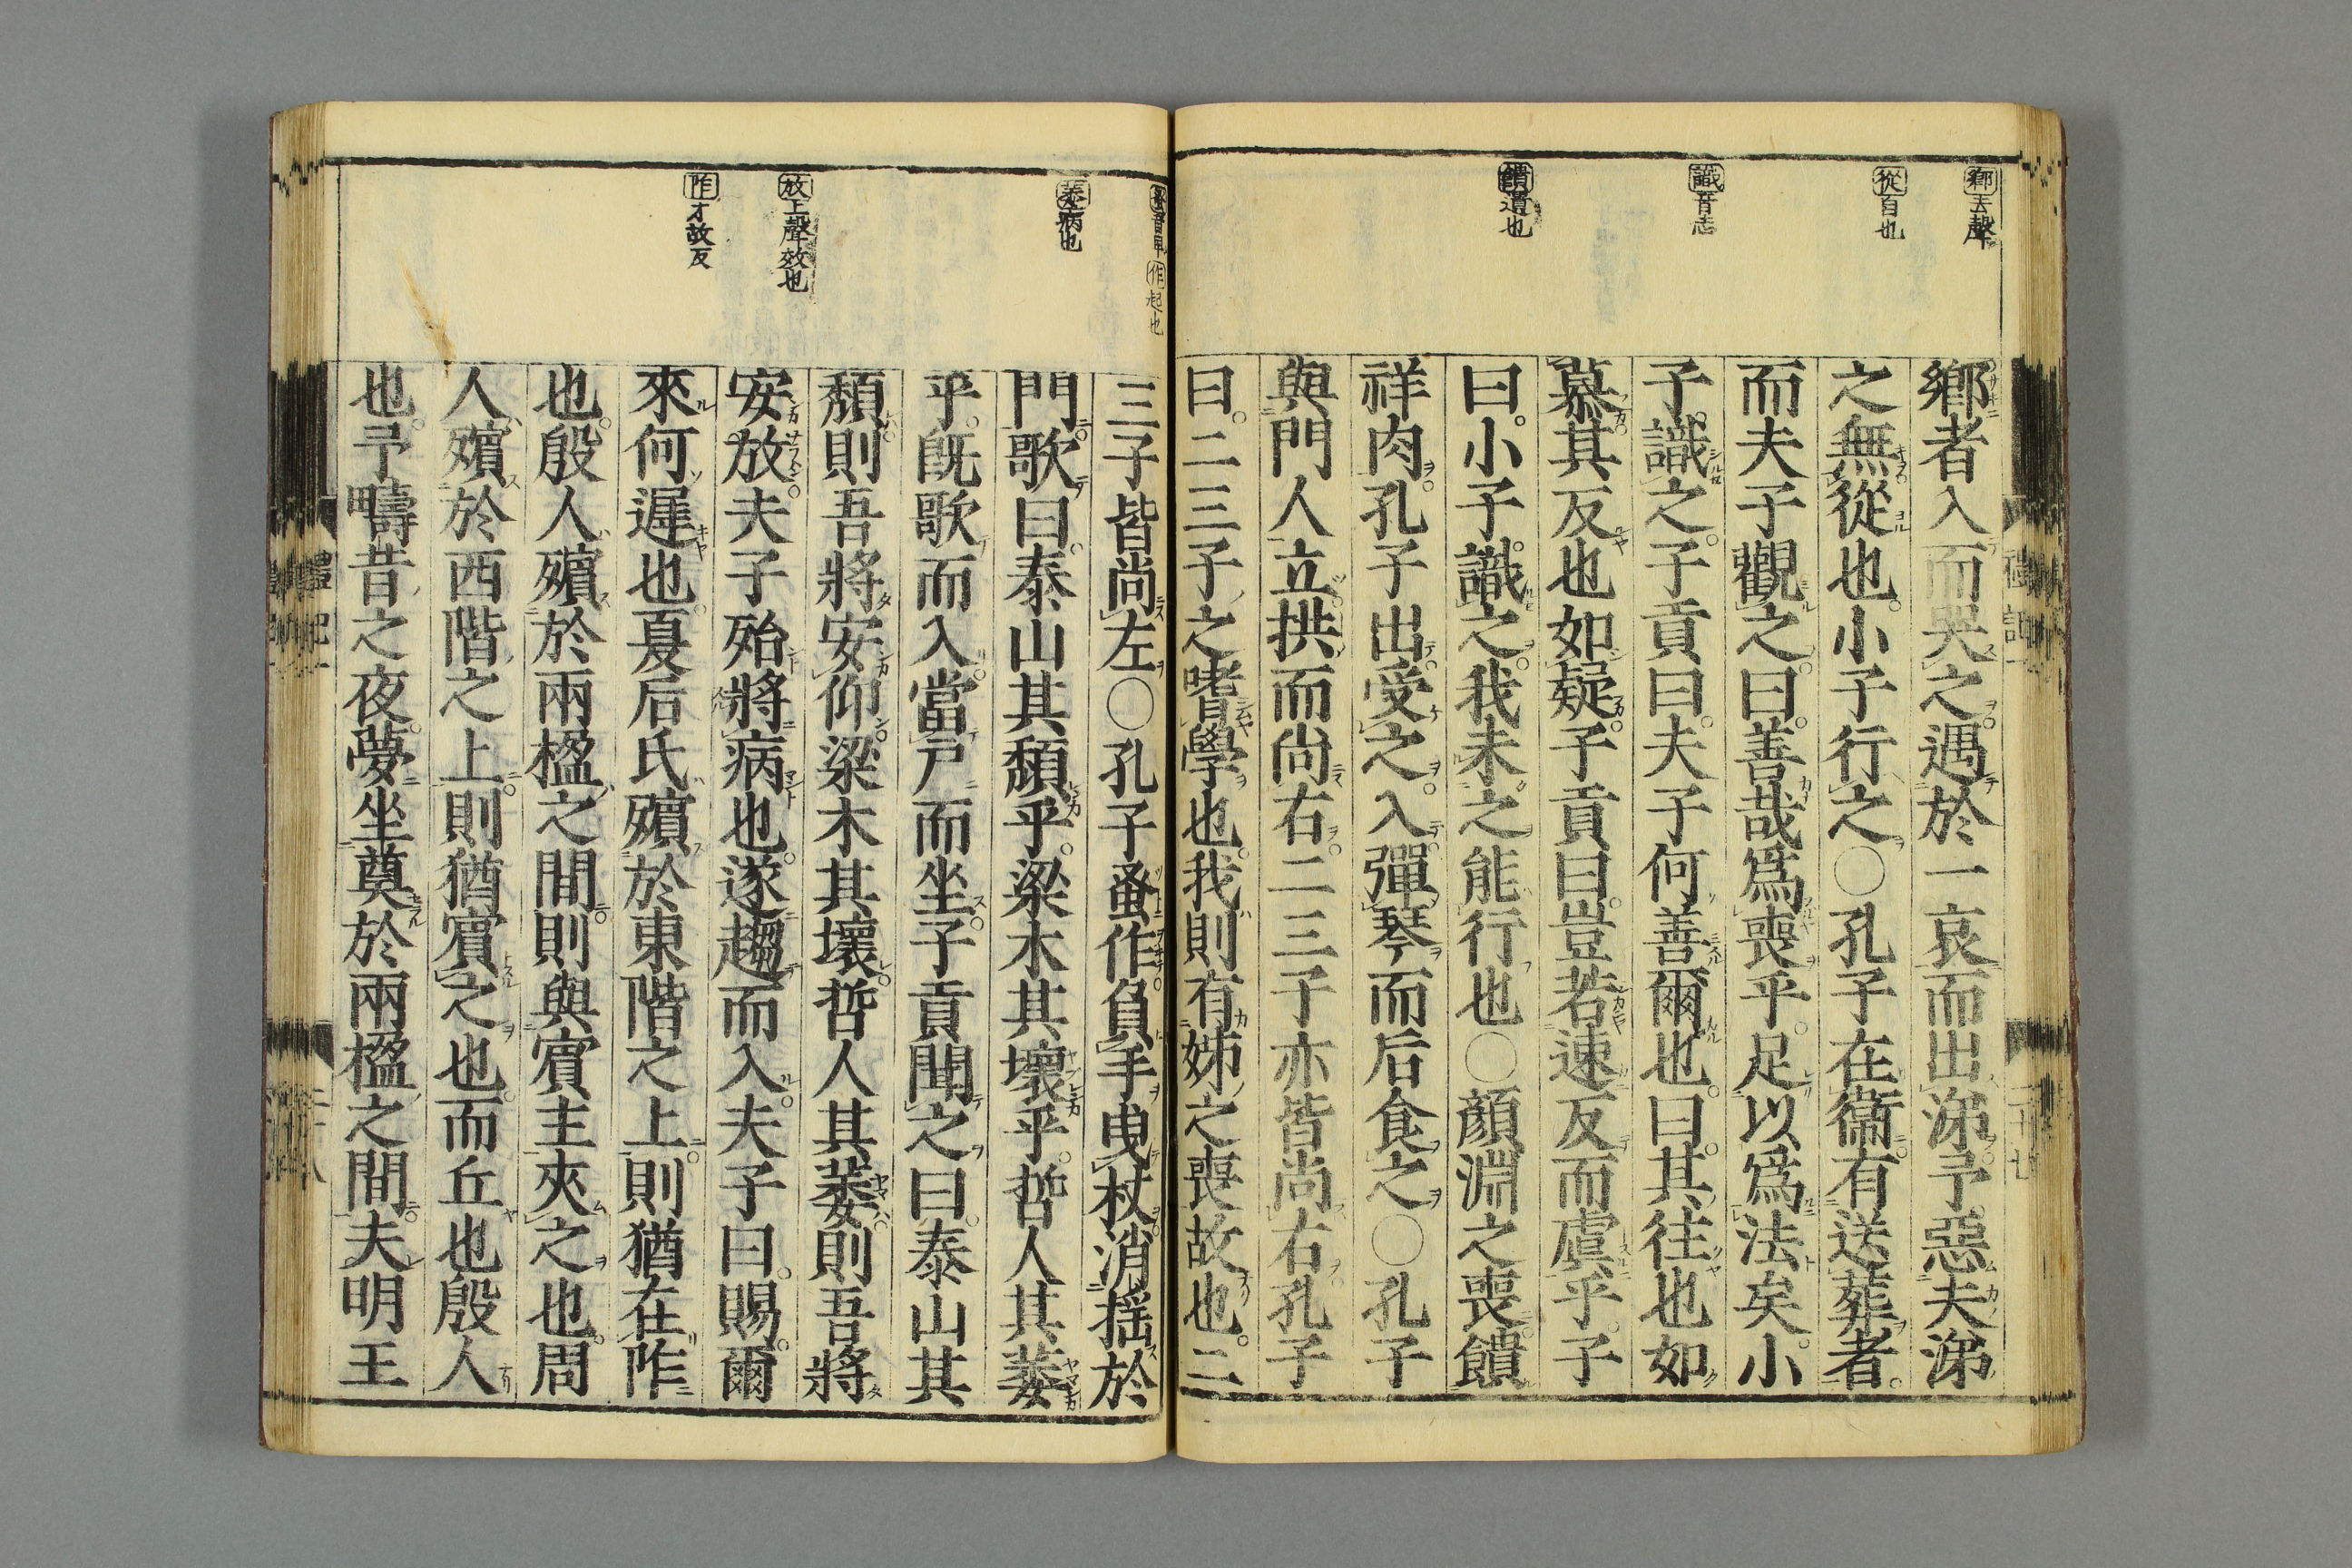 鄕去聲
從自也
識音志
饋遺也
鄕者入而哭之遇於一哀而出涕予惡夫涕
之無從也小子行之○孔子在衞有送葬者
而夫子觀之曰善哉爲喪乎足以爲法矣小
子識之子貢曰夫子何善爾也曰其往也如
慕其反也如疑子貢曰豈若速反而虞乎子
曰小子識之我未之能行也○顏淵之喪饋
祥肉孔子出受之入彈琴而后食之○孔子
與門人立拱而尚右二三子亦皆尚右孔子
曰二三子之嗜學也我則有姊之喪故也二
作起也
萎病也
放上聲效也
阼才故反
三子皆尚左○孔子蚤作負手曳杖消揺於
門歌曰泰山其頽乎梁木其壞乎哲人其萎
乎旣歌而入當戸而坐子貢聞之曰泰山其
頽則吾將安仰梁木其壞哲人其萎則吾將
安放夫子殆將病也遂趨而入夫子曰賜爾
來何遲也夏后氏殯於東階之上則猶在阼
也殷人殯於兩楹之間則與賓主夾之也周
人殯於西階之上則猶賓之也而丘也殷人
也予疇昔之夜夢坐奠於兩楹之間夫明王
禮記一